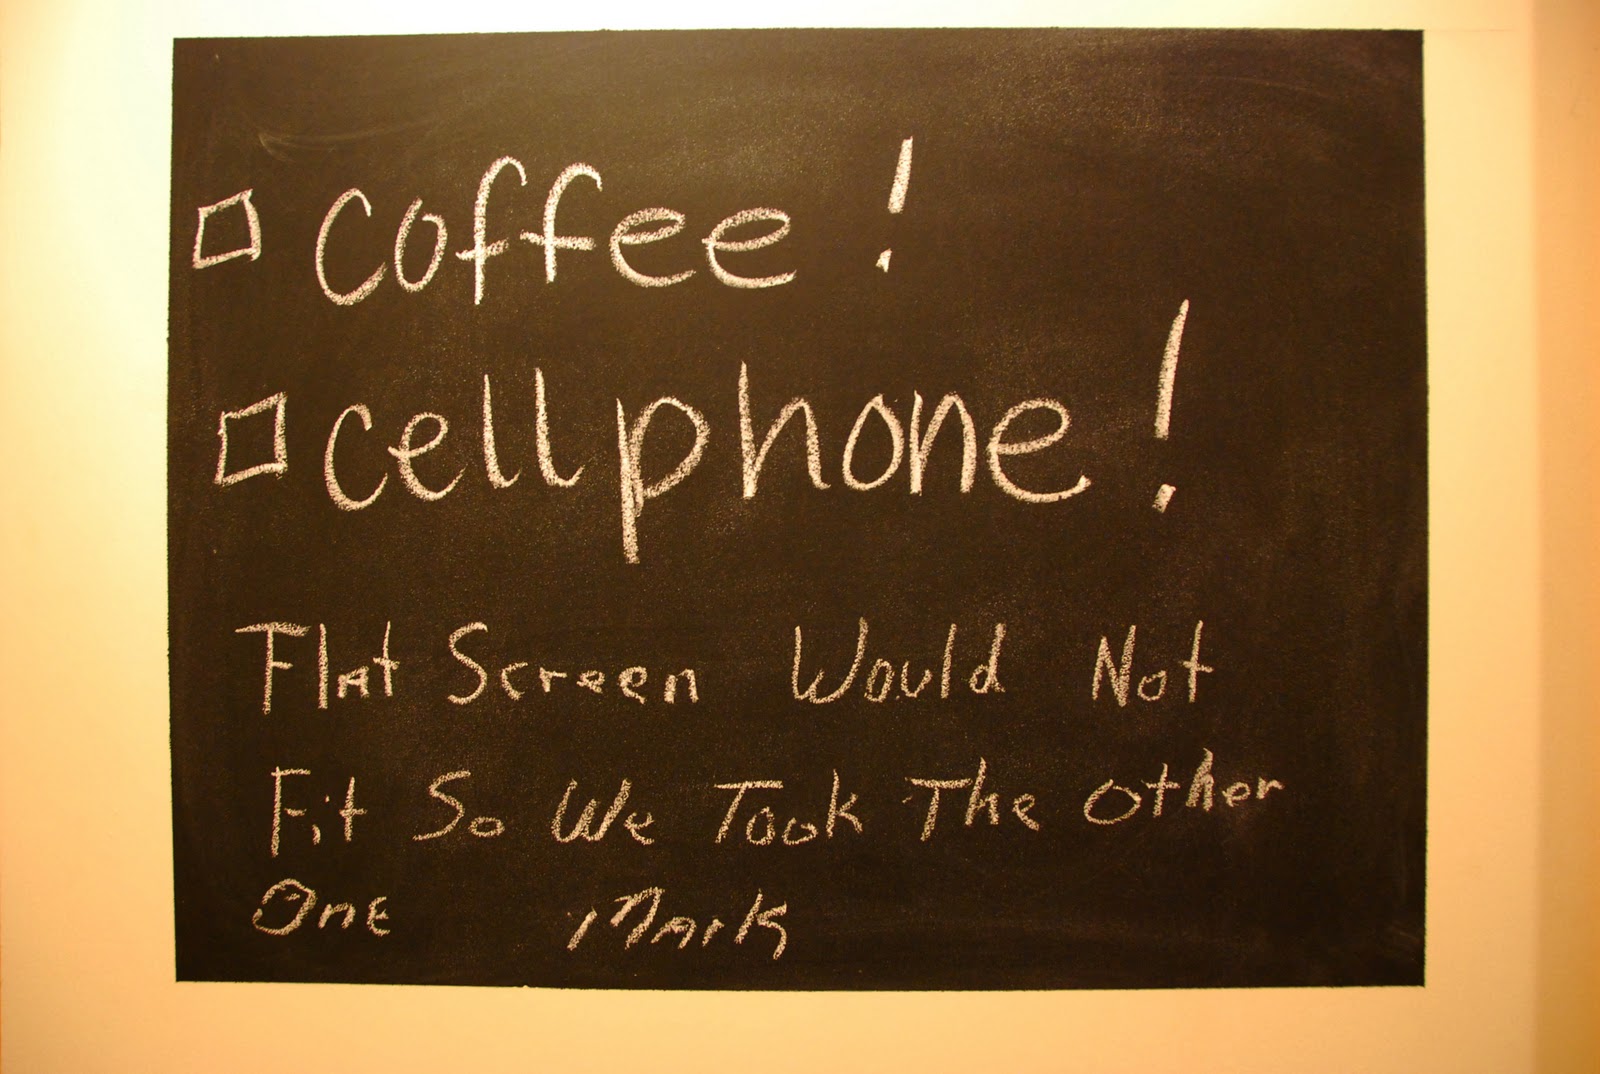 □ coffee!
□ cellphone!
Flat Screen Would Not
Fit So We Took The Other
One Mark